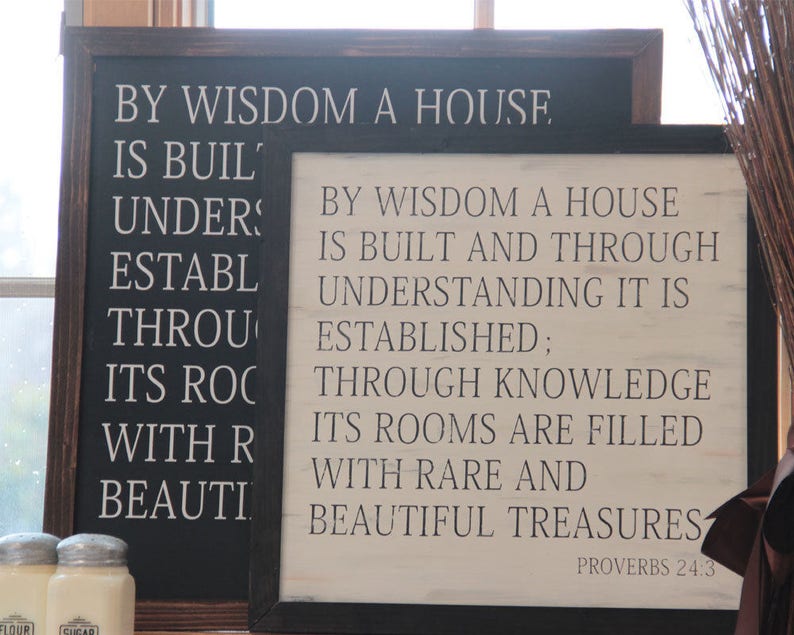 BY WISDOM A HOUSE
IS BUILT
UNDERS
ESTABL
THROU
ITS ROO
WITH R
BEAUTI
BY WISDOM A HOUSE
IS BUILT AND THROUGH
UNDERSTANDING IT IS
ESTABLISHED;
THROUGH KNOWLEDGE
ITS ROOMS ARE FILLED
WITH RARE AND
BEAUTIFUL TREASURES.
PROVERBS 24:3
FLOUR
SUGAR